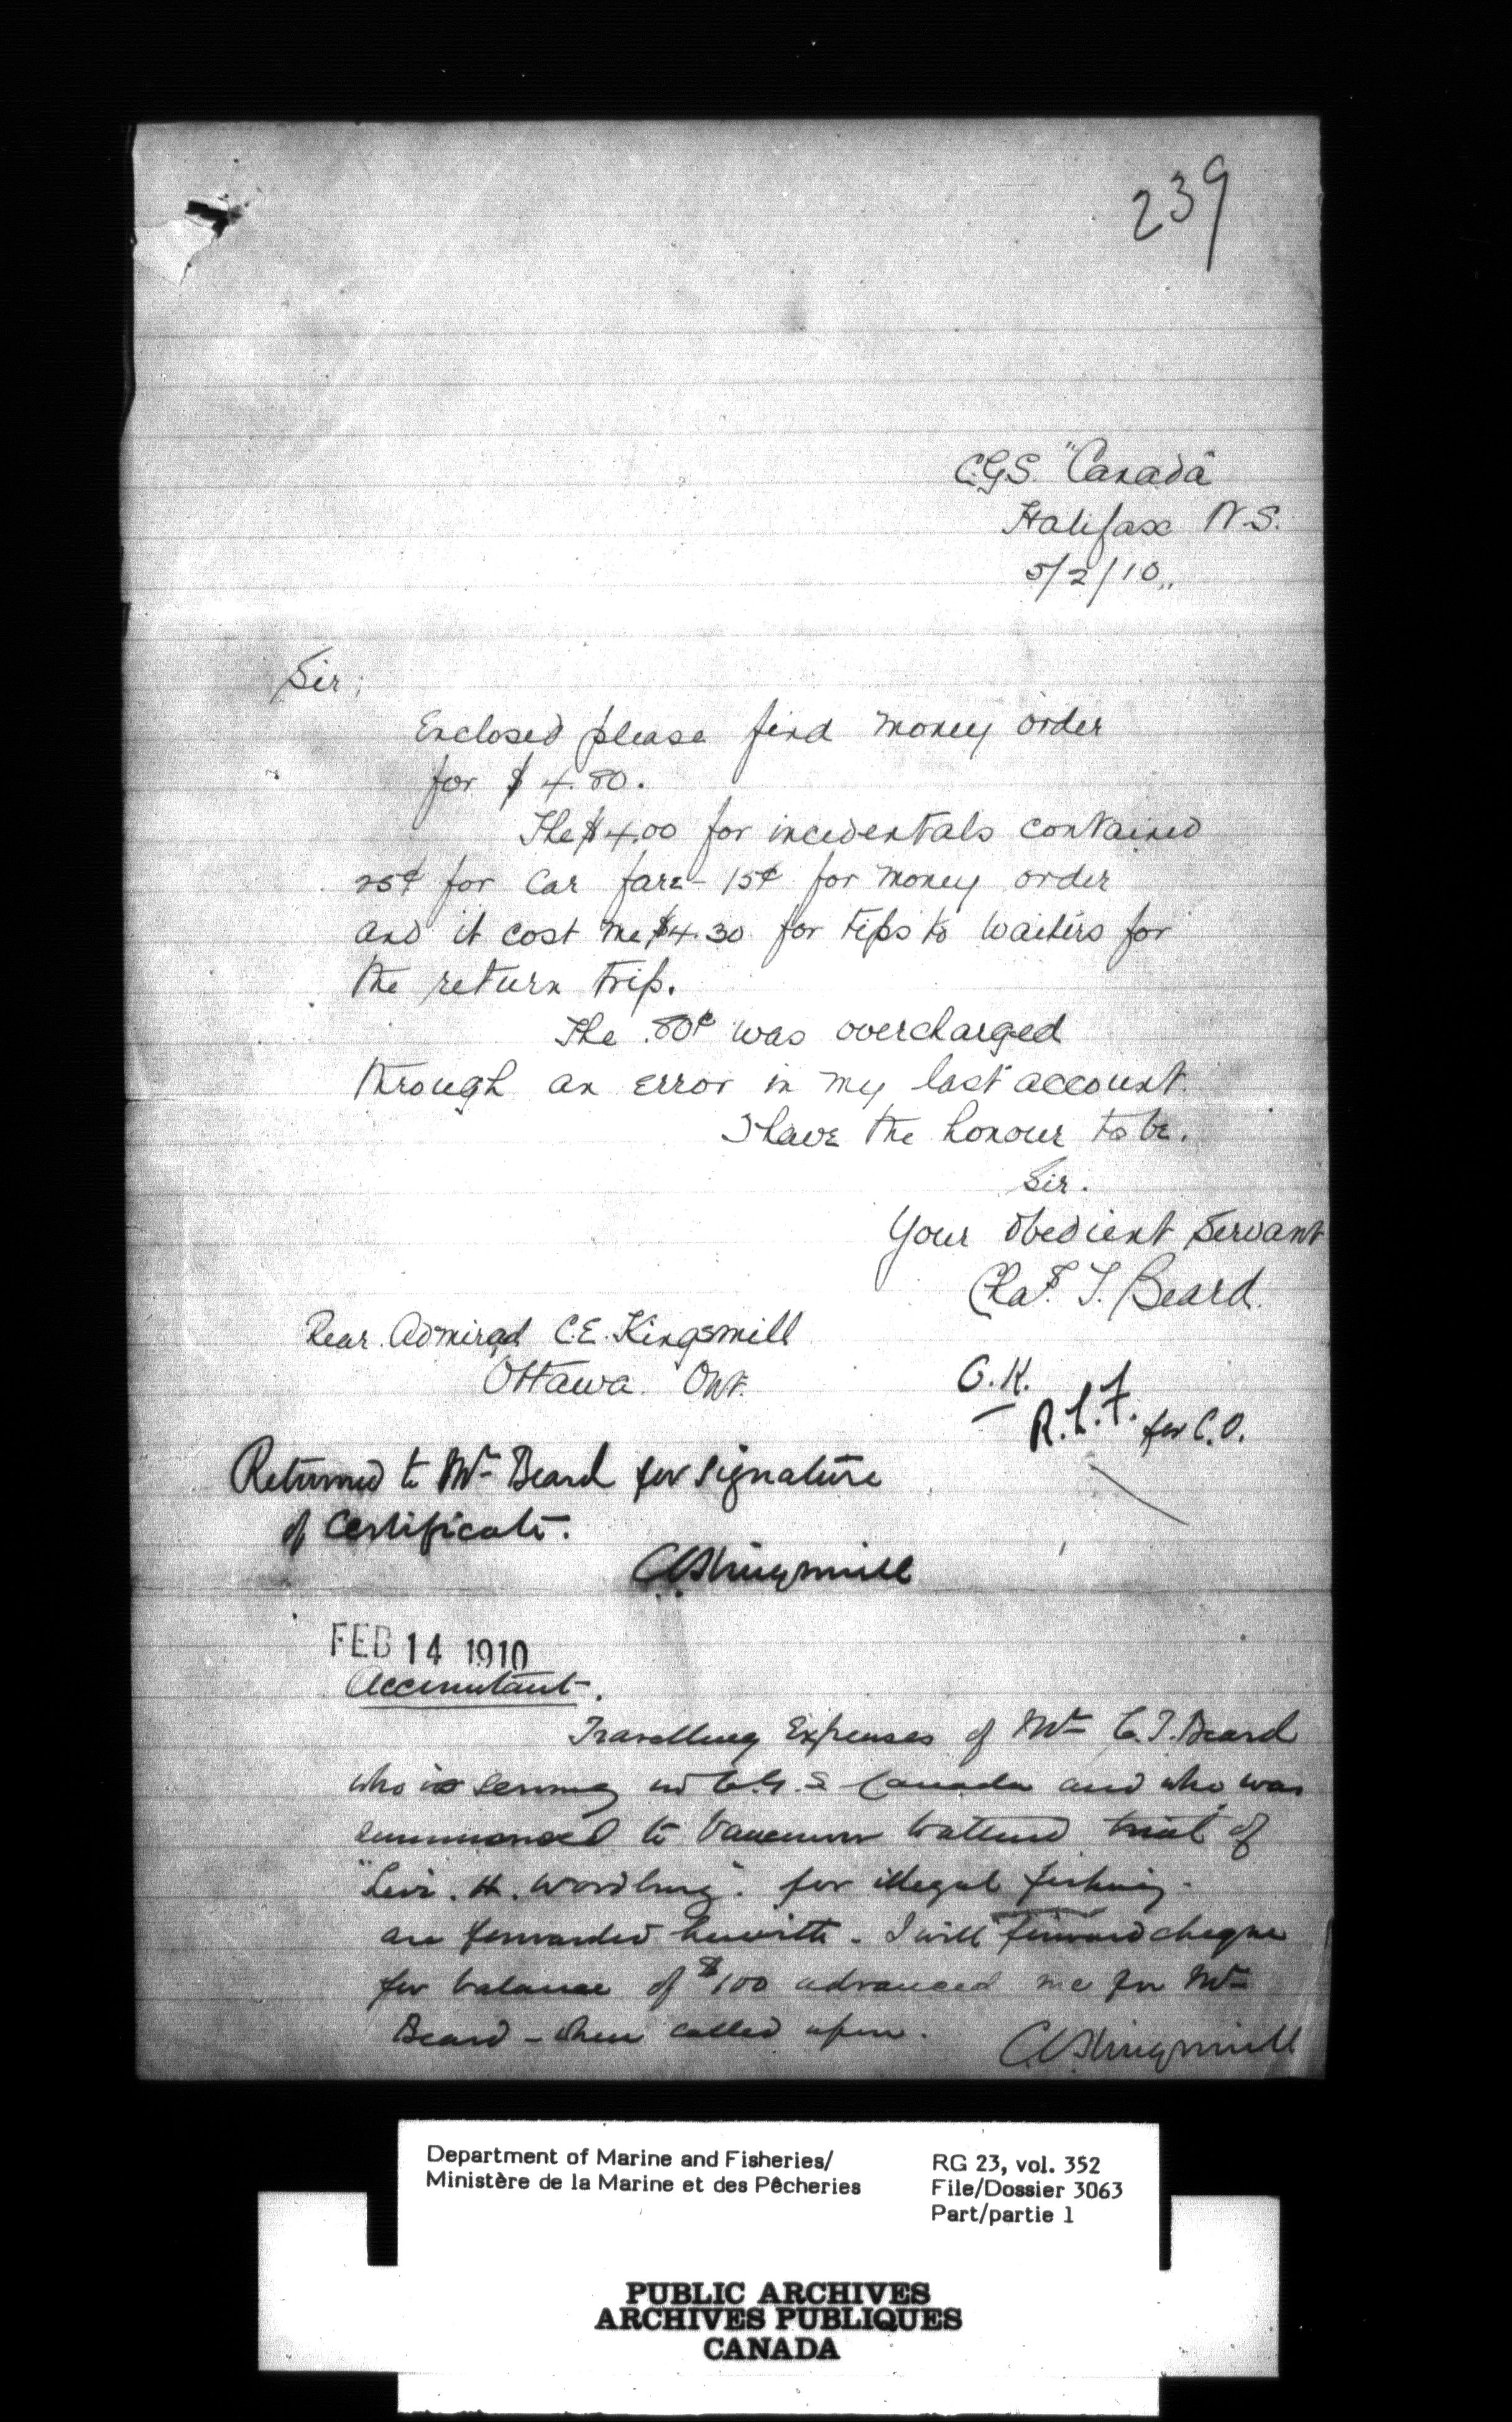 239
C.G.S. "Canada"
Halifax N.S.
5/2/10,,
Sir;
Enclosed please find money order
for $4.80.
The $4.00 for incedentals contained
25¢ for Car fare - 15¢ for money order
and it cost me $4.30 for tips to waiters for
the return trip.
The .80¢ was overcharged
through an error in my last account.
I have the honour to be.
Sir.
Your obedient servant
Chas. T. Beard.
Rear. Admiral C.E. Kingsmill
Ottawa. Ont.
O.K.
R.L.F. for C.O.
Returned to Mr Beard for signature
of Certificate.
CEKingsmill
FEB 14 1910
Accountant.
Travelling Expenses of Mr C.T. Beard
who is serving in C.G.S Canada and who was
summonsed to Vancouver to attend trial of
"Levi. H. Woodbury". for illegal fishing.
are forwarded herewith. I will forward cheque
for balance of $100 advanced me for Mr
Beard - when called upon.
CEKingsmill
Department of Marine and Fisheries/
Ministère de la Marine et des Pêcheries
RG 23, vol. 352
File/Dossier 3063
Part/partie 1
PUBLIC ARCHIVES
ARCHIVES PUBLIQUES
CANADA